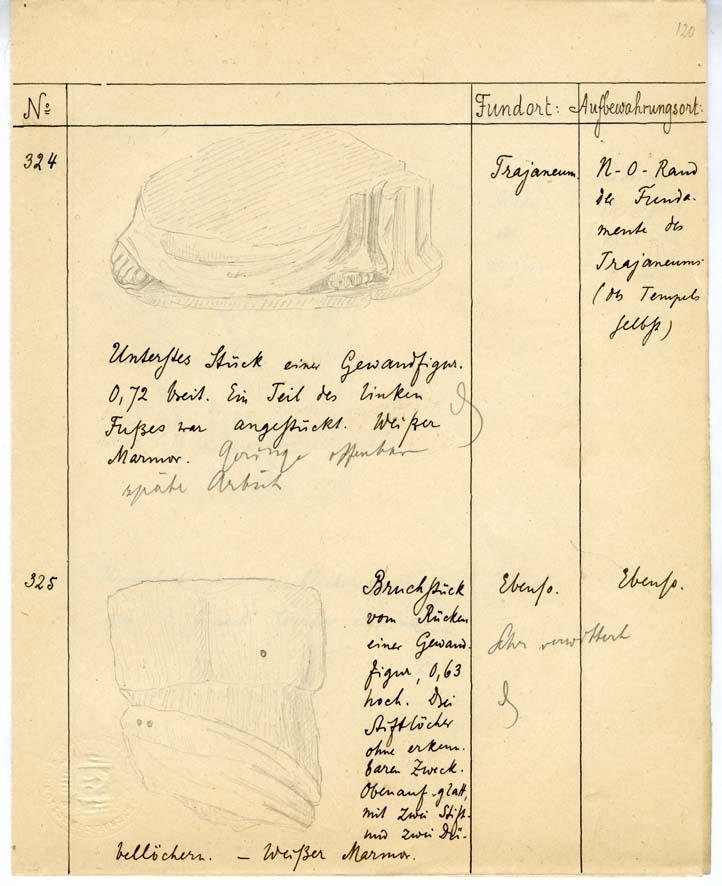 120
No Fundort: Aufbewahrungsort:
324
Trajaneum.
N-O-Rand
der Funda-
mente des
Trajaneums
(des Tempels
selbst)
Unterstes Stück einer Gewandfigur.
0,72 breit. Ein Teil des linken
Fußes war angestückt. Weißer
Marmor. Geringe offenbar
späte Arbeit
325
Bruchstück
vom Rücken
einer Gewand-
figur, 0,63
hoch. Drei
Stiftlöcher
ohne erkenn-
baren Zweck.
Obenauf glatt,
mit zwei Stift-
und zwei Dü-
bellöchern. – Weißer Marmor.
Ebenso.
Sehr verwittert
Ebenso.